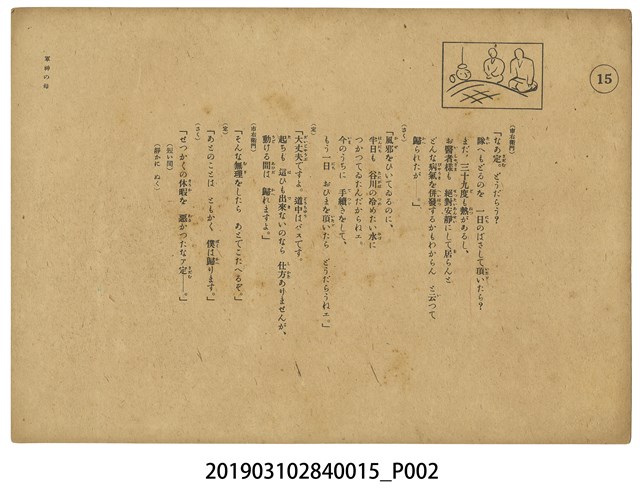 15
(市右衛門)
「なあ定。どうだらう?
隊へもどるのを 一日のばさして頂いたら?
まだ、三十九度も熱があるし、
お醫者様も 絕對安靜にして居らんと
どんな病氣を併發するかもわからん と云つて
歸られたが――。」
(さく)
「風邪をひいてゐるのに、
半日も 谷川の冷めたい水に
つかつてゐたんだからねェ。
今のうちに 手續きをして、
もう一日 おひまを頂いたら どうだらうねェ。」
(定)
「大丈夫ですよ。道中はバスです。
起ちも 這ひも出來ないのなら 仕方ありませんが、
動ける間は 歸れますよ。」
(市右衛門)
「そんな無理をしたら あとでこたへるぞ。」
(定)
「あとのことは ともかく 僕は歸ります。」
(さく)
「せつかくの休暇を 惡かつたなァ定――。」
(短い間)
(靜かに ぬく)
軍神の母
201903102840015_P002